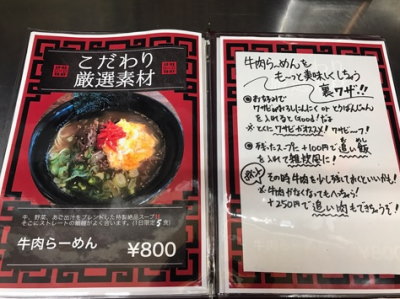 こだわり
厳選素材
牛、野菜、あご出汁をブレンドした特製絶品スープ!!
そこにストレートの細麺がよく合います。(1日限定5食)
牛肉らーめん
¥800
牛肉らーめんを
も〜っと美味しくしちゃう
裏ワザ!!
お好みで
ワサビorおろしにんにく or とうばんじゃん
を入れるとGood!なり
※とくにワサビがオススメ!ワサビ〜フ!
残ったスープに+100円で追い飯
を入れて雑炊風に!
その時牛肉を少し残しておくといいかも!
※牛肉がなくなっても
+250円で追い肉もできちゃうぞ!